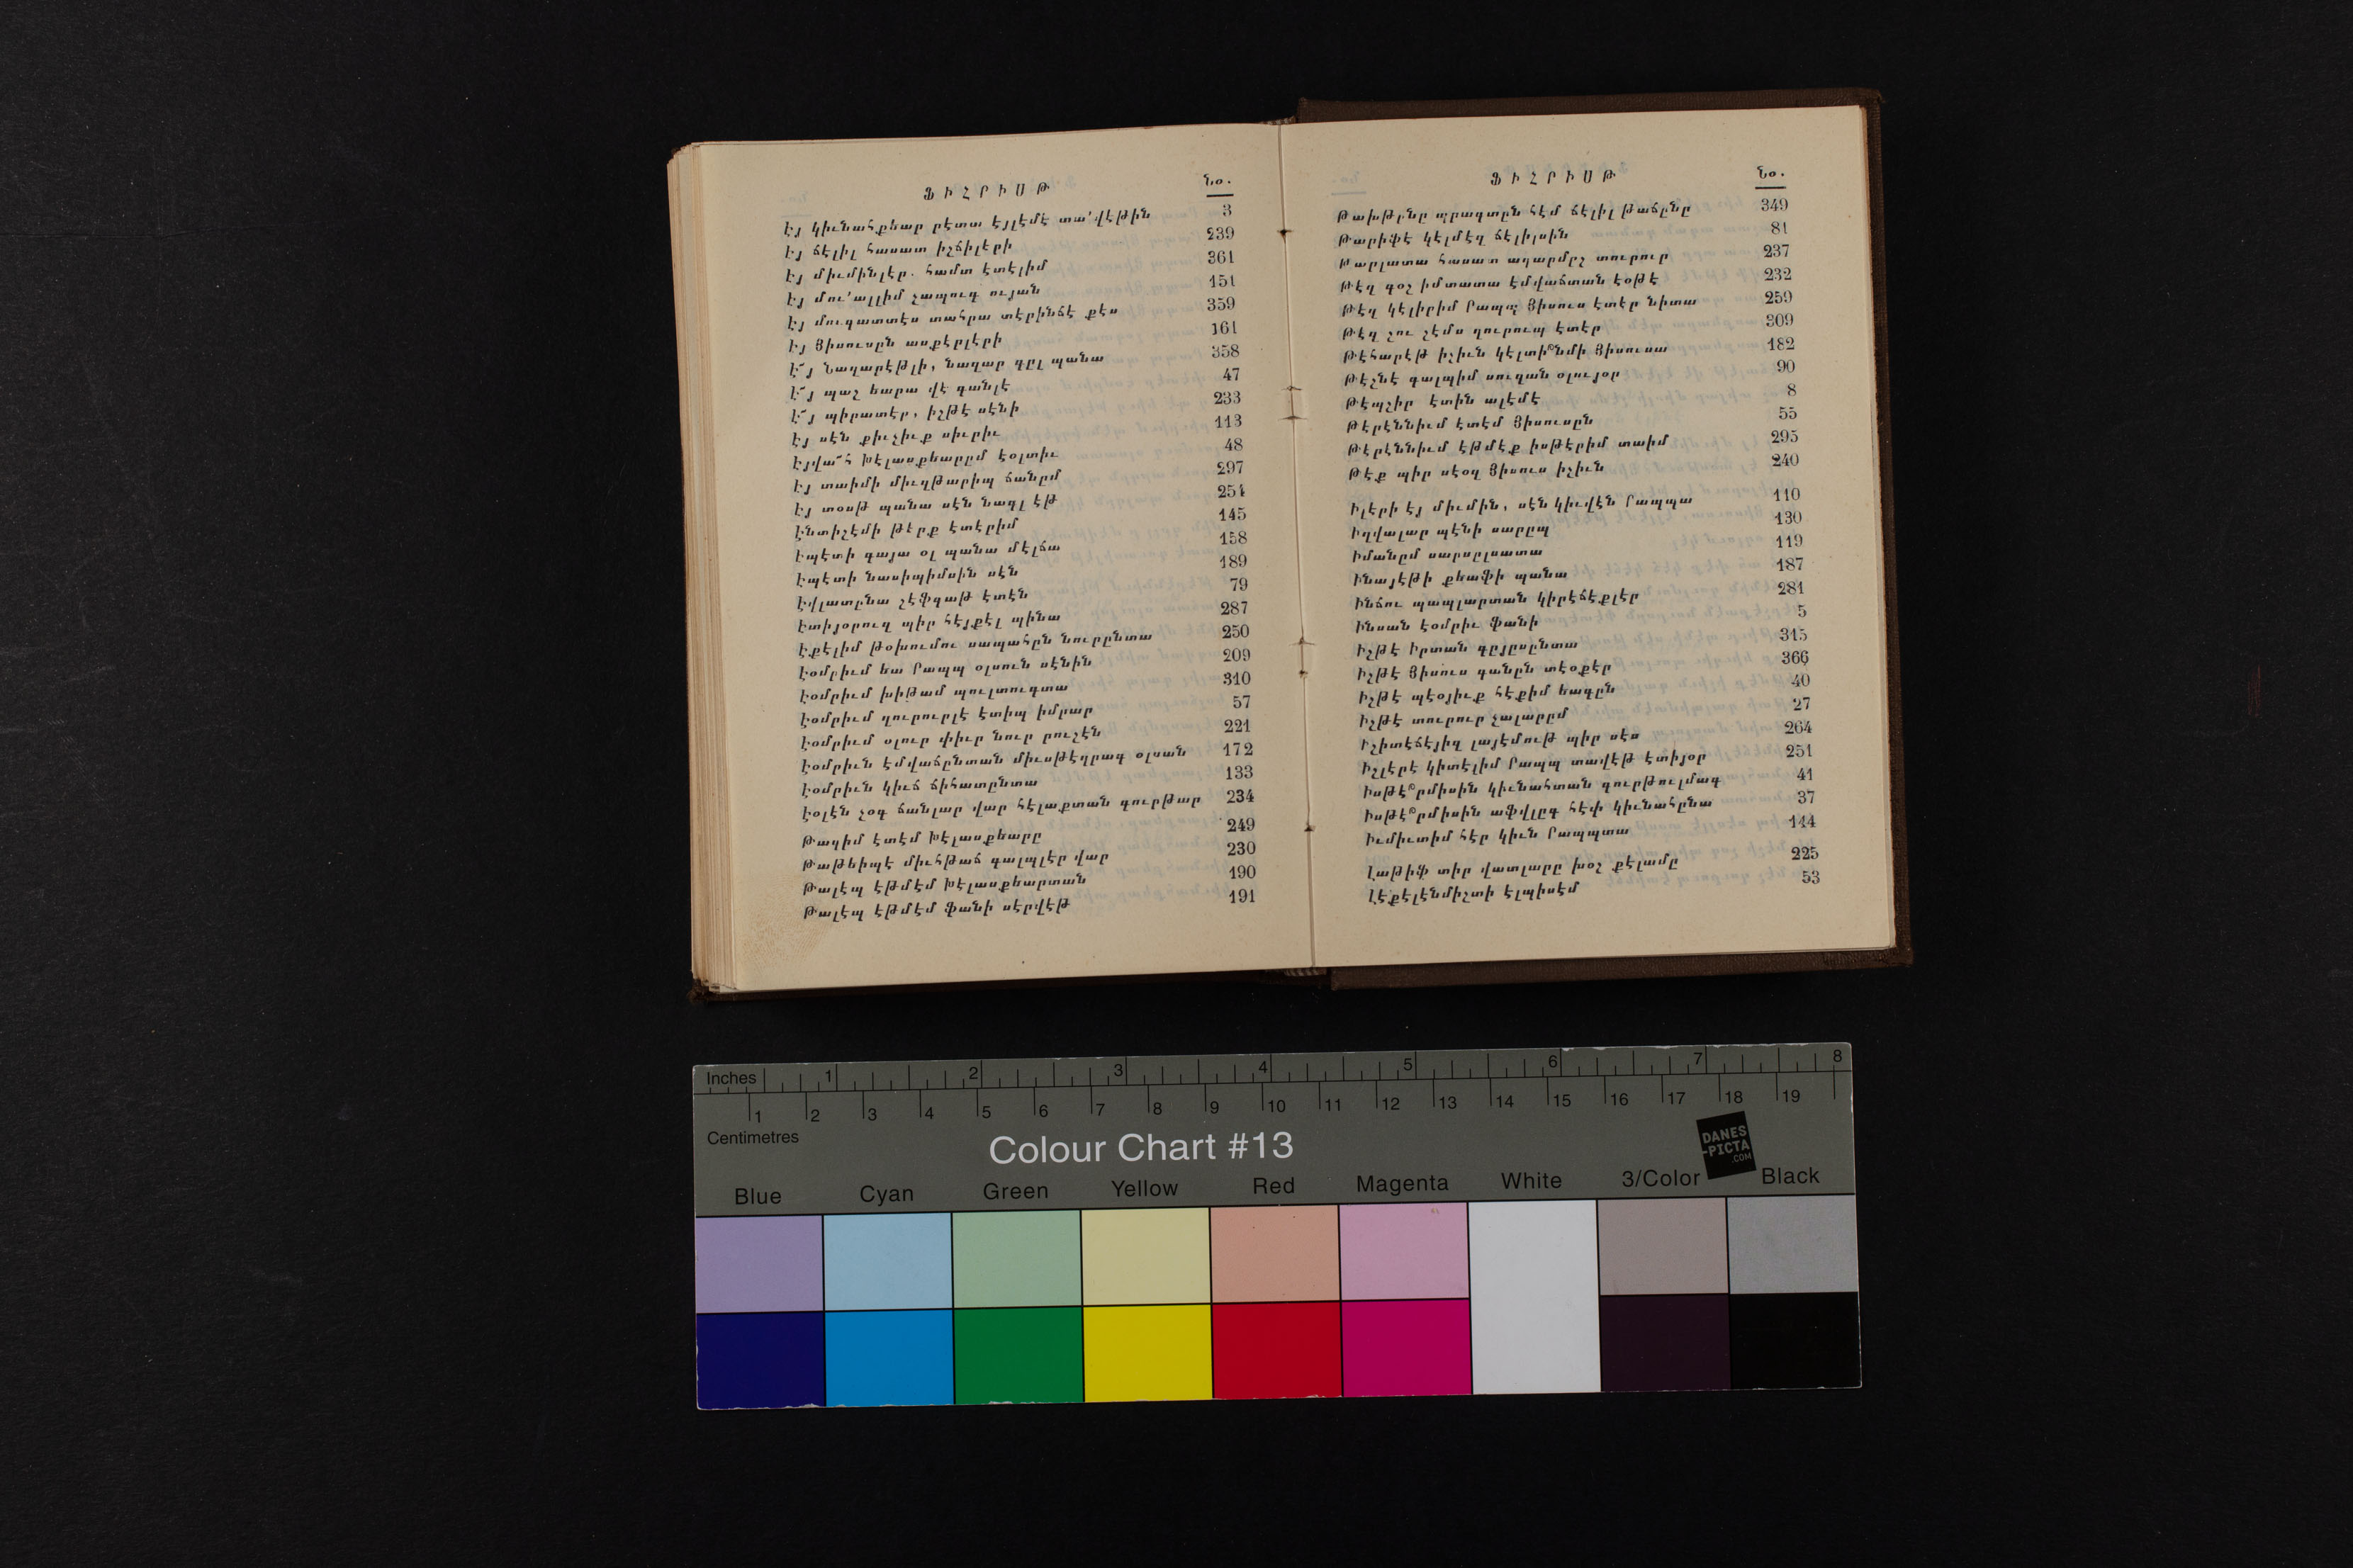 ՖԻՀՐԻՍԹ
Նօ.
Էյ կիւնահքեար րէտտ էյլէմէ տա՛վէթին 3
Էյ ճէլիլ հասատ իշճիլէրի 239
Էյ միւմինլէր. համտ էտէլիմ 361
Էյ մու՛ալլիմ չապուգ ույան 151
Էյ մուգատտէս տահրա տէրինճէ քէս 359
Էյ Յիսուսըն ասքէրլէրի 161
Է՜յ Նազարէթլի, նազար գըլ պանա 358
Է՜յ պաշ եարա վէ գանլէ 47
Է՜յ պիրատէր, իշթէ սէնի 233
Էյ սէն քիւչիւք սիւրիւ 113
Էյվա՜հ Խէլասքեարըմ էօլտիւ 48
Էյ տաիմի միւղթարիպ ճանըմ 297
Էյ տօսթ պանա սէն նագլ էթ 254
Էնտիշէմի թէրք էտէրիմ 145
Էպէտի գայա օլ պանա մէլճա 158
Էպէտի նասիպիմսին սէն 189
Էվլատընա շէֆգաթ էտէն 79
Էտիյօրուզ պիր հէյքէլ պինա 287
Էքէլիմ թօխումու սապահըն նուրընտա 250
Էօմրիւմ եա Րապպ օլսուն սէնին 209
Էօմրիւմ խիթամ պուլտուգտա 310
Էօմրիւմ ղուրուրլէ էտիպ իմրար 57
Էօմրիւմ օլուր փիւր նուր րուշէն 221
Էօմրիւն էմվաճընտան միւսթէղրագ օլսան 172
Էօմրիւն կիւճ ճիհատընտա 133
Էօլէն չօգ ճանլար վար հէլաքտան գուրթար 234
Թազիմ էտէմ Խէլասքեարը 249
Թաթեիպէ միւհթաճ գալպլէր վար 230
Թալէպ էթմէմ Խէլասքեարտան 190
Թալէպ էթմէմ ֆանի սէրվէթ 191
ՖԻՀՐԻՍԹ
Նօ.
Թախթընը պրագտըն հէմ ճէլիլ թաճընը 349
Թարիֆէ կէլմէզ ճէլիլսին 81
Թարլատա հասատ աղարմըշ տուրուր 237
Թէզ գօշ իմտատա էմվաճտան էօթէ 232
Թէզ կէլիրիմ Րապպ Յիսուս էտէր նիտա 259
Թէզ չու չէմս ղուրուպ էտէր 309
Թէհարէթ իչիւն կէլտի՞նմի Յիսուսա 182
Թէշնէ գալպիմ սուզան օլույօր 90
Թէպշիր էտին ալէմէ 8
Թէրէննիւմ էտէմ Յիսուսըն 55
Թէրէննիւմ էթմէք իսթէրիմ տաիմ 295
Թէք պիր սէօզ Յիսուս իչիւն 240
Իլէրի էյ միւմին, սէն կիւվէն Րապպա 110
Իղվալար պէնի սարըպ 130
Իմանըմ սարսըլսատա 119
Ինայէթի քեաֆի պանա 187
Ինճու պապլարտան կիրէճէքլէր 281
Ինսան էօմրիւ ֆանի 5
Իշթէ Իրտան գըյըսընտա 315
Իշթէ Յիսուս գանըն տէօքէր 366
Իշթէ պէօյիւք հէքիմ եագըն 40
Իշթէ տուրուր չալարըմ 27
Իշիտէճէյիզ լայէմութ պիր սէս 264
Իշլէրէ կիտէլիմ Րապպ տավէթ էտիյօր 251
Իսթէ՞րմիսին կիւնահտան գուրթուլմագ 41
Իսթէ՞րմիսին աֆվլըգ հէփ կիւնահընա 37
Իւմիւտիմ հէր կիւն Րապպտա 144
Լաթիֆ տիր վատլարը խօշ քէլամը 225
Լէքէլէնմիշտի էլպիսէմ 53
Inches 1 2 3 4 5 6 7 8
1 2 3 4 5 6 7 8 9 10 11 12 13 14 15 16 17 18 19
Centimetres
Colour Chart #13
DANES
-PICTA
.COM
Blue Cyan Green Yellow Red Magenta White 3/Color Black